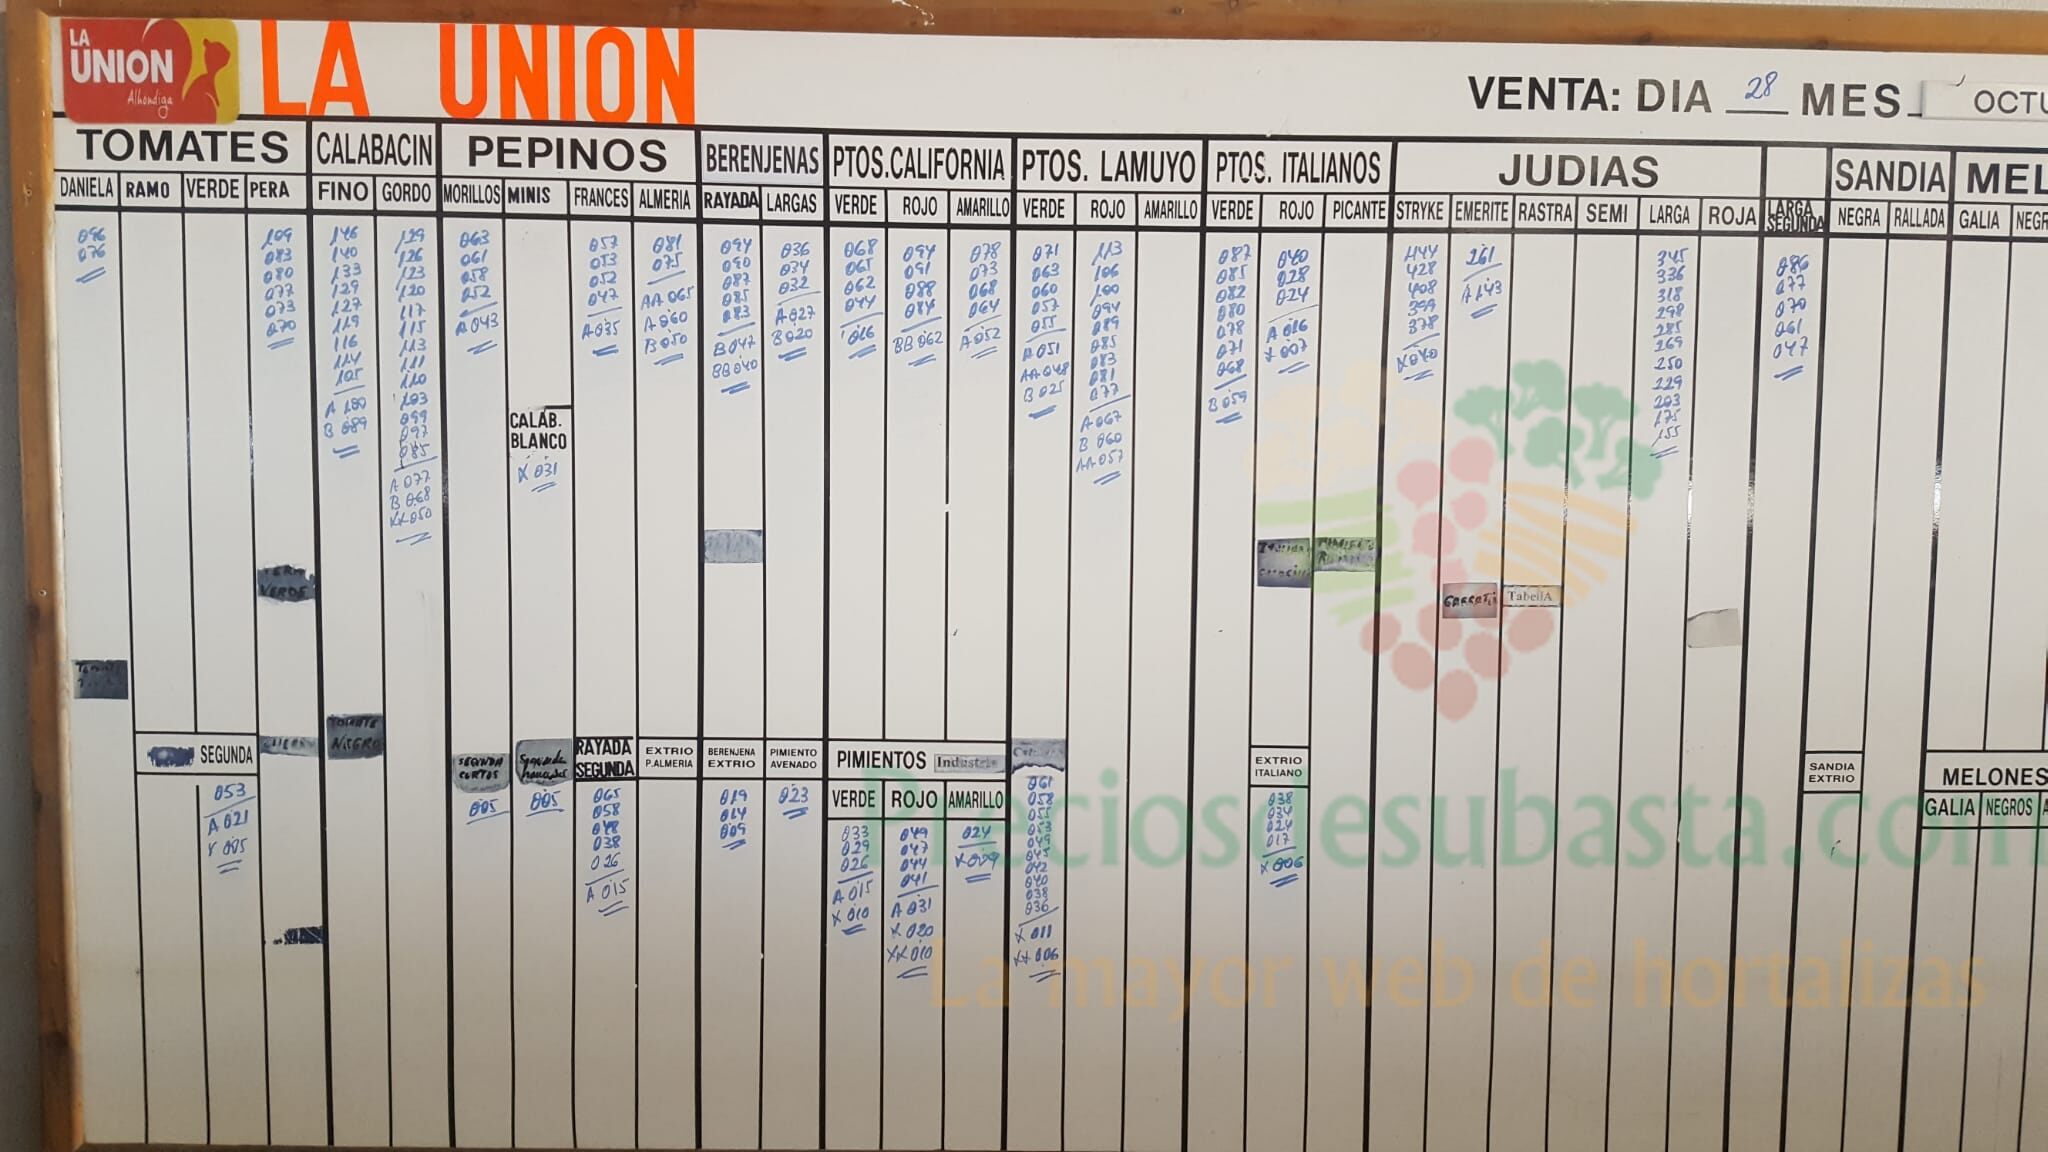 LA UNION Alhóndiga
LA UNION
VENTA: DIA 28 MES OCTU
TOMATES CALABACIN PEPINOS BERENJENAS PTOS.CALIFORNIA PTOS. LAMUYO PTOS. ITALIANOS JUDIAS SANDIA MEL
DANIELA RAMO VERDE PERA FINO GORDO MORILLOS MINIS FRANCES ALMERIA RAYADA LARGAS VERDE ROJO AMARILLO VERDE ROJO AMARILLO VERDE ROJO PICANTE STRYKE EMERITE RASTRA SEMI LARGA ROJA LARGA SEGUNDA NEGRA RALLADA GALIA NEGR
096
076
109
083
080
077
073
070
146
140
133
129
127
119
116
114
105
A 100
B 089
129
126
123
120
117
115
113
111
110
103
099
097
085
A 077
B 068
XX 050
063
061
058
052
A 043
CALAB.
BLANCO
X 031
057
053
052
047
A 035
081
075
AA 065
A 060
B 050
094
090
087
085
083
B 047
BB 040
036
034
032
A 027
B 020
068
065
062
044
016
094
091
088
084
BB 062
078
073
068
064
A 052
071
063
060
057
055
A 051
AA 048
B 025
113
106
100
094
089
085
083
081
077
A 067
B 060
AA 057
087
085
082
080
078
071
068
B 059
040
028
024
A 016
X 007
444
428
408
399
378
X 040
261
A 143
345
336
318
298
285
269
250
229
203
175
155
086
077
070
061
047
VERDE
TabellA
TOMATE
NEGRO
SEGUNDA
053
A 021
X 005
SEGUNDA
CORTOS
005
Segunda
005
RAYADA
SEGUNDA
065
058
048
038
026
A 015
EXTRIO
P.ALMERIA
BERENJENA
EXTRIO
019
014
009
PIMIENTO
AVENADO
023
PIMIENTOS Industria
VERDE ROJO AMARILLO
033
029
026
A 015
X 010
049
047
044
041
A 031
X 020
XX 010
024
X 009
061
058
055
053
049
045
042
040
038
036
X 011
XX 006
EXTRIO
ITALIANO
038
034
024
017
X 006
SANDIA
EXTRIO
MELONES
GALIA NEGROS A
Preciosdesubasta.com
La mayor web de hortalizas